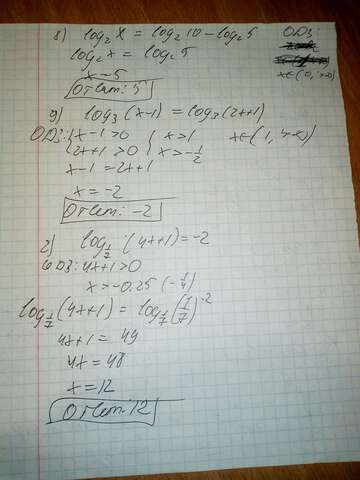 8) log₂ x = log₂ 10 − log₂ 5 ОДЗ
log₂ x = log₂ 5 x∈(0, +∞)
x = 5
Ответ: 5
9) log₃ (x−1) = log₃ (2x+1)
ОДЗ: { x−1 > 0 { x > 1 x∈(1, +∞)
{ 2x+1 > 0 { x > −1/2
x−1 = 2x+1
x = −2
Ответ: −2
2) log_{1/7} (4x+1) = −2
ОДЗ: 4x+1 > 0
x > −0.25 (−1/4)
log_{1/7} (4x+1) = log_{1/7} (1/7)^{-2}
4x+1 = 49
4x = 48
x = 12
Ответ: 12